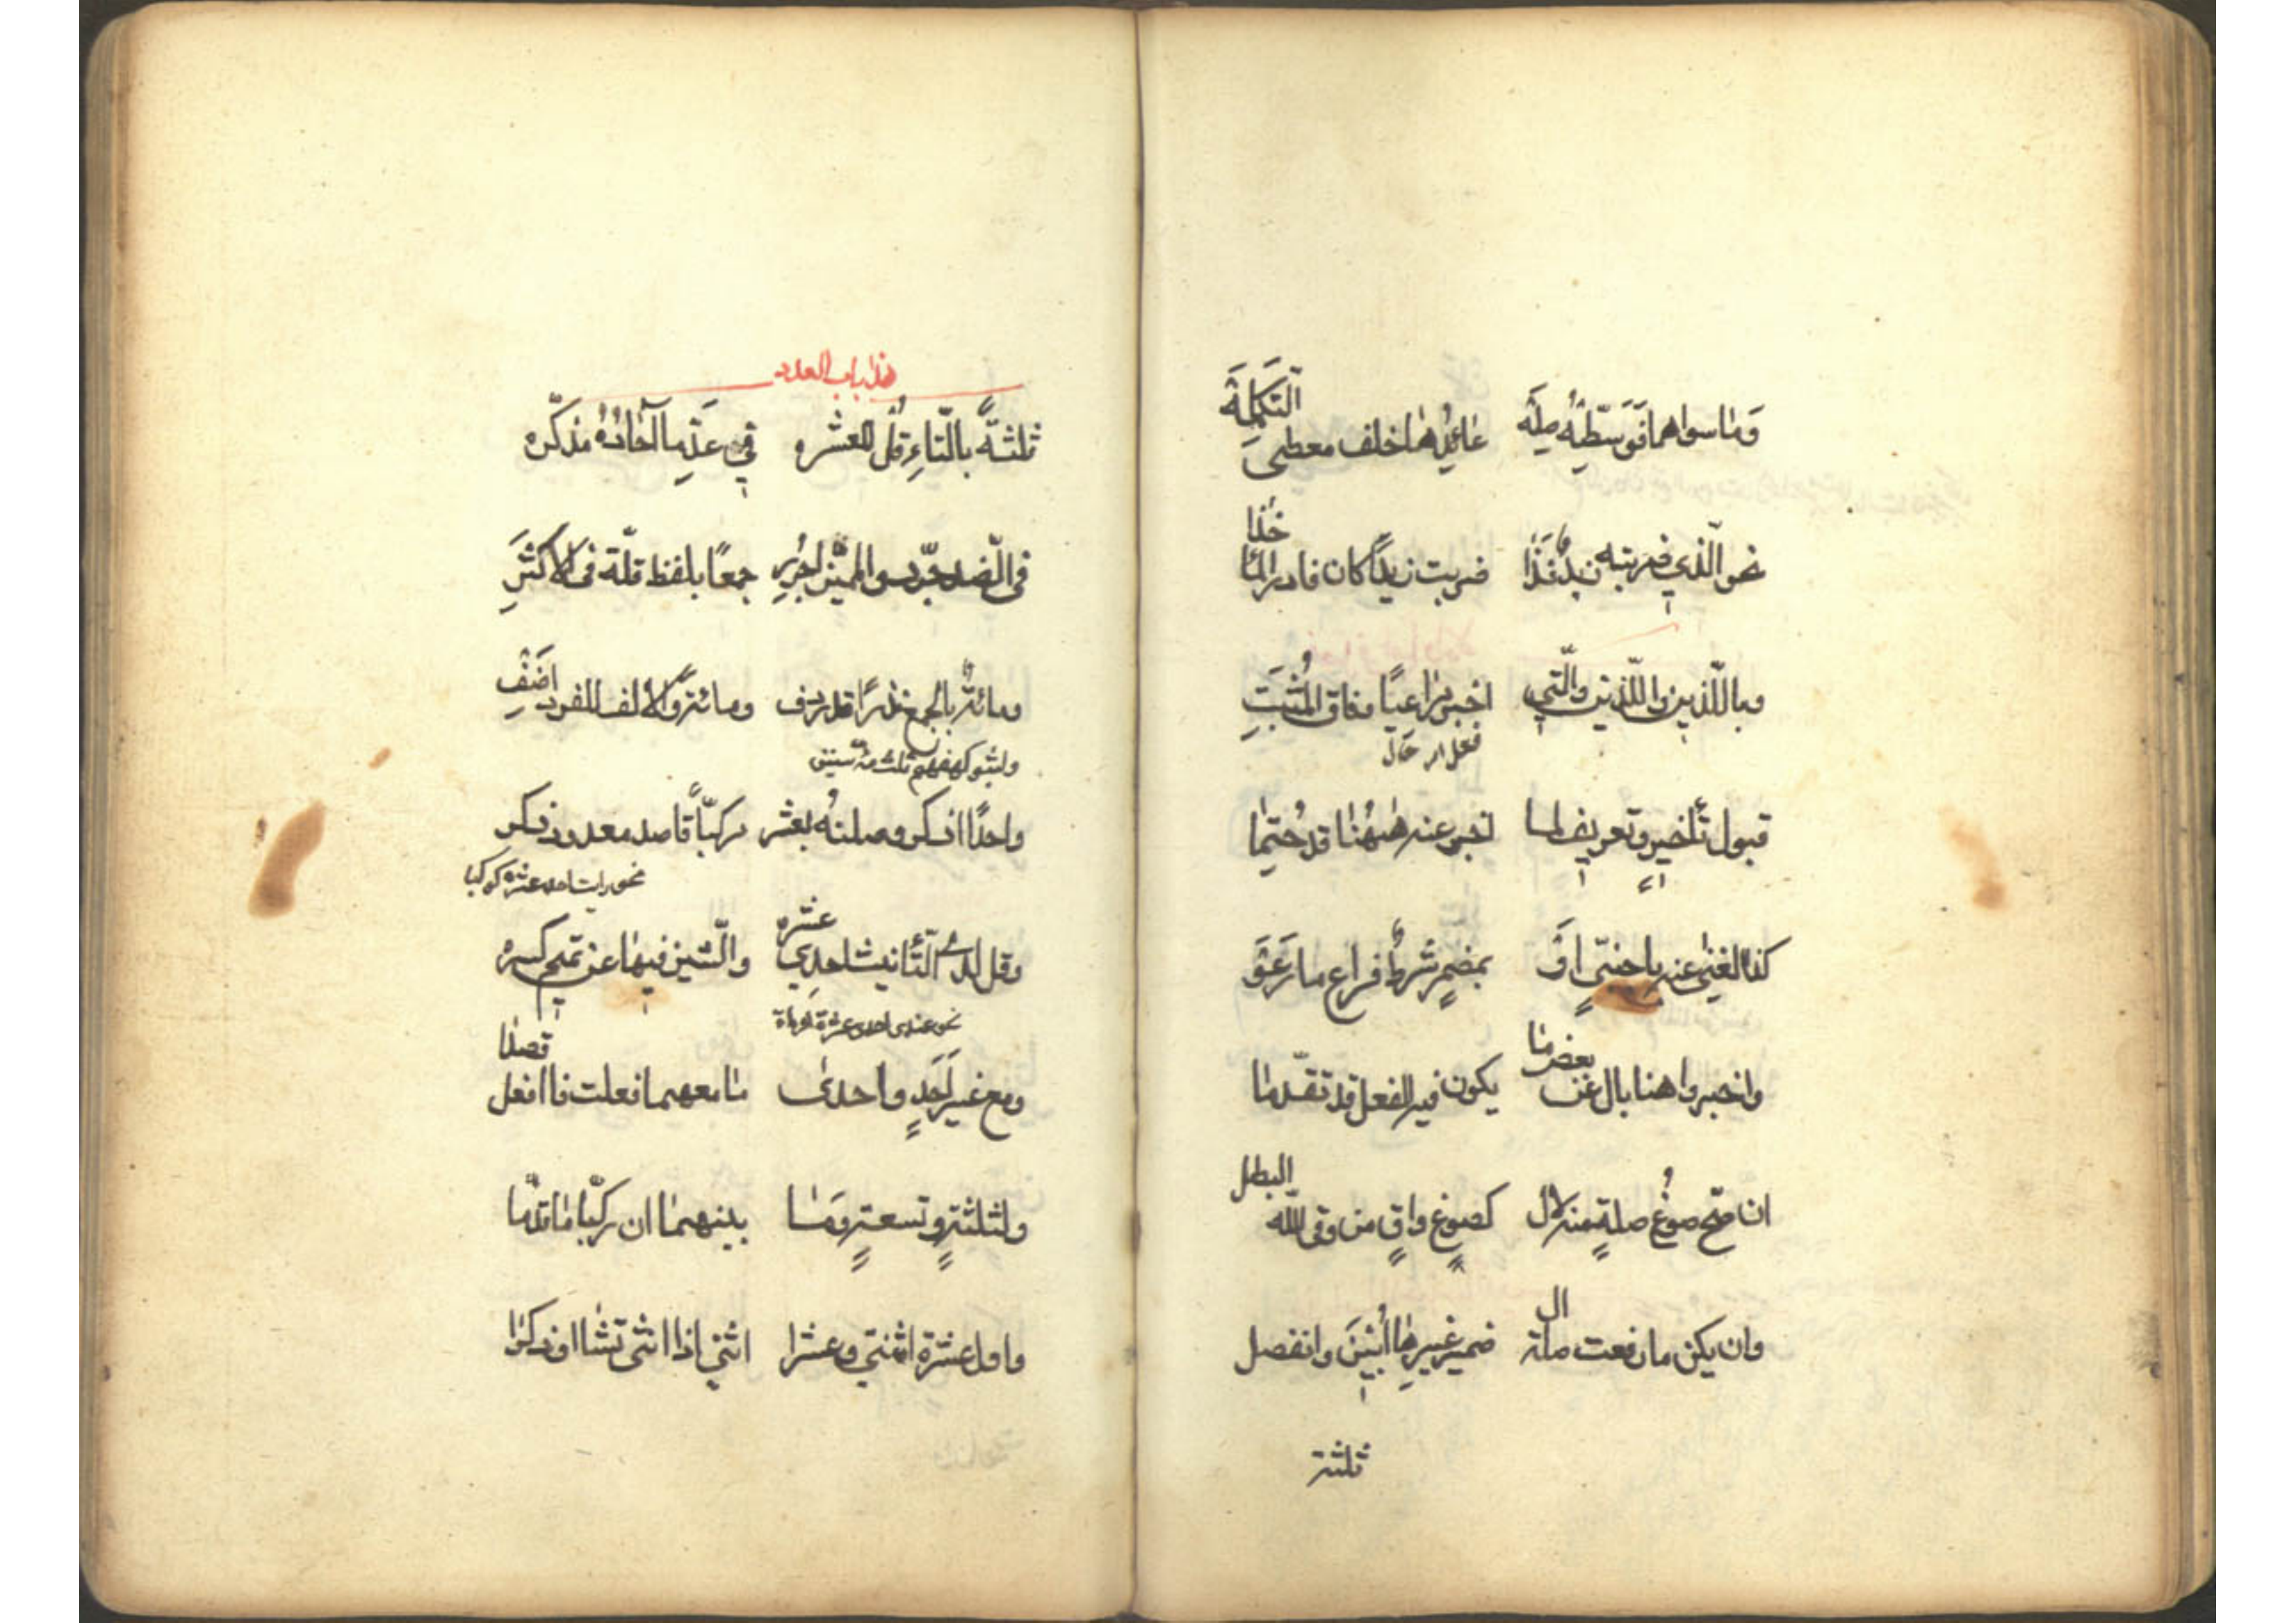 وَمٰا سواهما فَوَسّطْهُ صِلَه عٰائِدُهٰا خلف معطى التَّكْمِلَة
نحو الّذي ضربته زيدٌ فَذٰا ضربت زيدًا كان فادر المأخذا
وباللّذين والّذين والّتي اخبر مراعيًا وفاق المُثْبَتِ
فعل امر حال
قبول تأخيرٍ وتعريفٍ لما اخبر عنه هٰهُنٰا قد حُتِمٰا
كذا الغنى عنه باجنبىٍّ اوْ بمضمرٍ شرطٌ فراع ما رَعَوْا
واخبروا هنا بال عن بعض مٰا يكون فيه الفعل قد تقدّمٰا
ان صحّ صوغُ صلةٍ منه لال كصوغ واقٍ من وقى اللّه البطل
وان يكن ما رفعت صلة ال ضمير غيرهٰا أُبينَ وانفصل
ثلثة
هذا باب العدد
ثلثةً بالتّاءِ قُلْ للعشره في عَدِّ ما آحٰادُهُ مذكّره
في الضّد جرّد والمميّز اجرُرِ جمعًا بلفظ قلّة فى الاكثرَِ
ومائةٌ بالجمع نذرًا قد ردف ومائة والالف للفرد اضَفْ
ولبثوا كهفهم ثلث مئة سنين
واحدًا اذكر وصلنهُ بعشر مركّبًا قاصد معدود ذكر
نحو رايت احد عشر كوكبا
وقل لدى التّأنيث احدي عشره والشّين فيها عن تميم كسره
نحو عندى احدى عشرة امرأة
ومع غير اَحَدٍ واحدى مٰا معهما فعلت فافعل قصدا
ولثلثةٍ وتسعةٍ ومٰا بينهمٰا ان ركّبا مٰا قدّما
واول عشرة اثنتي وعشرا اثني اذا انثى تشا او ذكرا